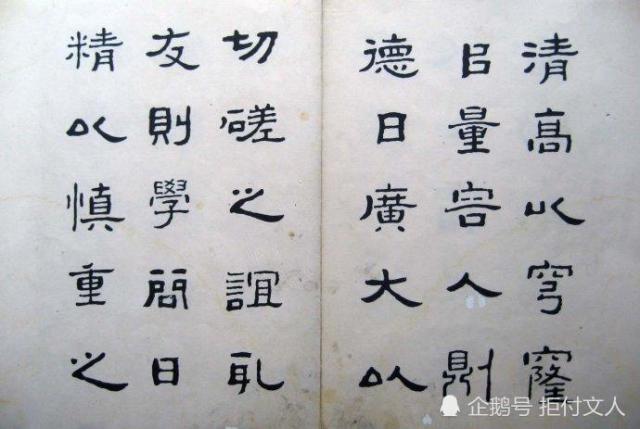 清高以穹窿
㠯量容人則
德日廣大以
切磋之誼取
友則學問日
精以慎重之
企鹅号 拒付文人